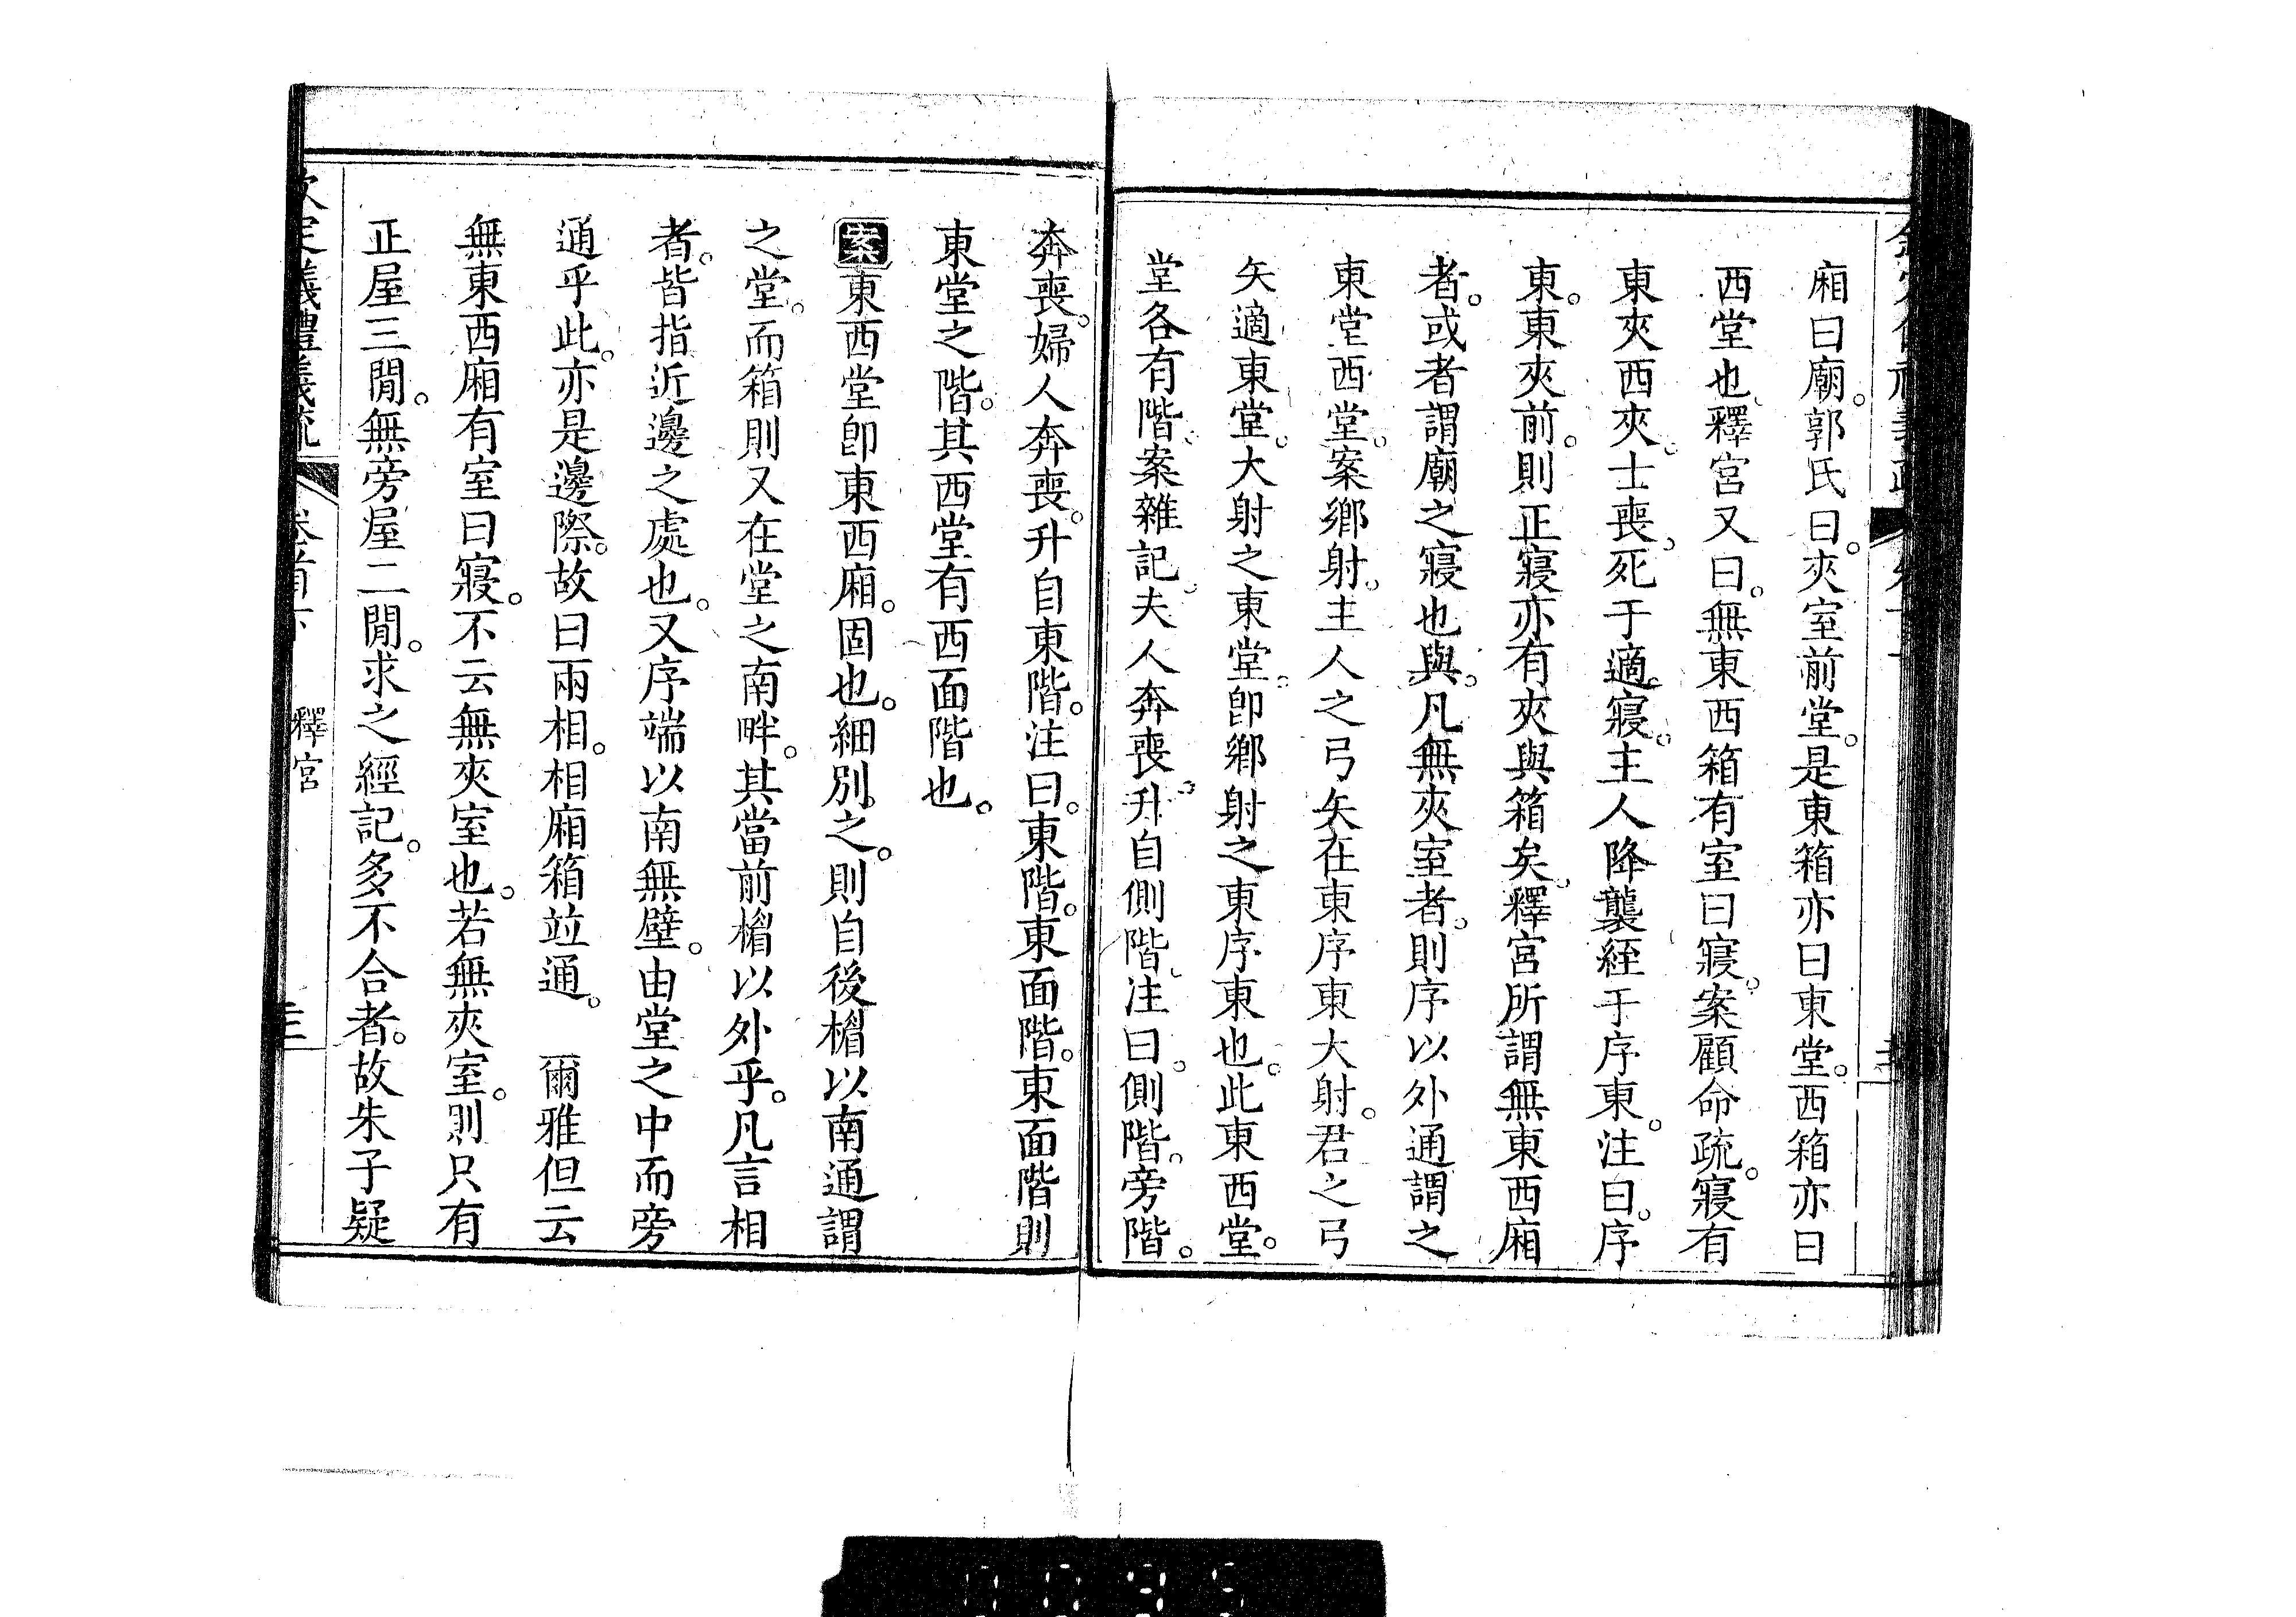 廂曰廟。郭氏曰。夾室前堂。是東箱亦曰東堂。西箱亦曰
西堂也。釋宮又曰。無東西箱有室曰寢。案顧命疏。寢有
東夾西夾。士喪。死于適寢。主人降襲絰于序東。注曰。序
東。東夾前。則正寢亦有夾與箱矣。釋宮所謂無東西廂
者。或者謂廟之寢也與。凡無夾室者。則序以外通謂之
東堂西堂。案鄉射。主人之弓矢在東序東。大射。君之弓
矢適東堂。大射之東堂。卽鄉射之東序東也。此東西堂。
堂各有階。案雜記。夫人奔喪。升自側階。注曰。側階。旁階。
奔喪。婦人奔喪。升自東階。注曰。東階。東面階。東面階則
東堂之階。其西堂有西面階也。
案東西堂卽東西廂。固也。細別之。則自後楣以南通謂
之堂。而箱則又在堂之南畔。其當前楣以外乎。凡言相
者。皆指近邊之處也。又序端以南無壁。由堂之中而旁
通乎此。亦是邊際。故曰兩相。相廂箱竝通。 爾雅但云
無東西廂有室曰寢。不云無夾室也。若無夾室。則只有
正屋三閒。無旁屋二閒。求之經記。多不合者。故朱子疑
欽定儀禮義疏 卷首下 釋宮